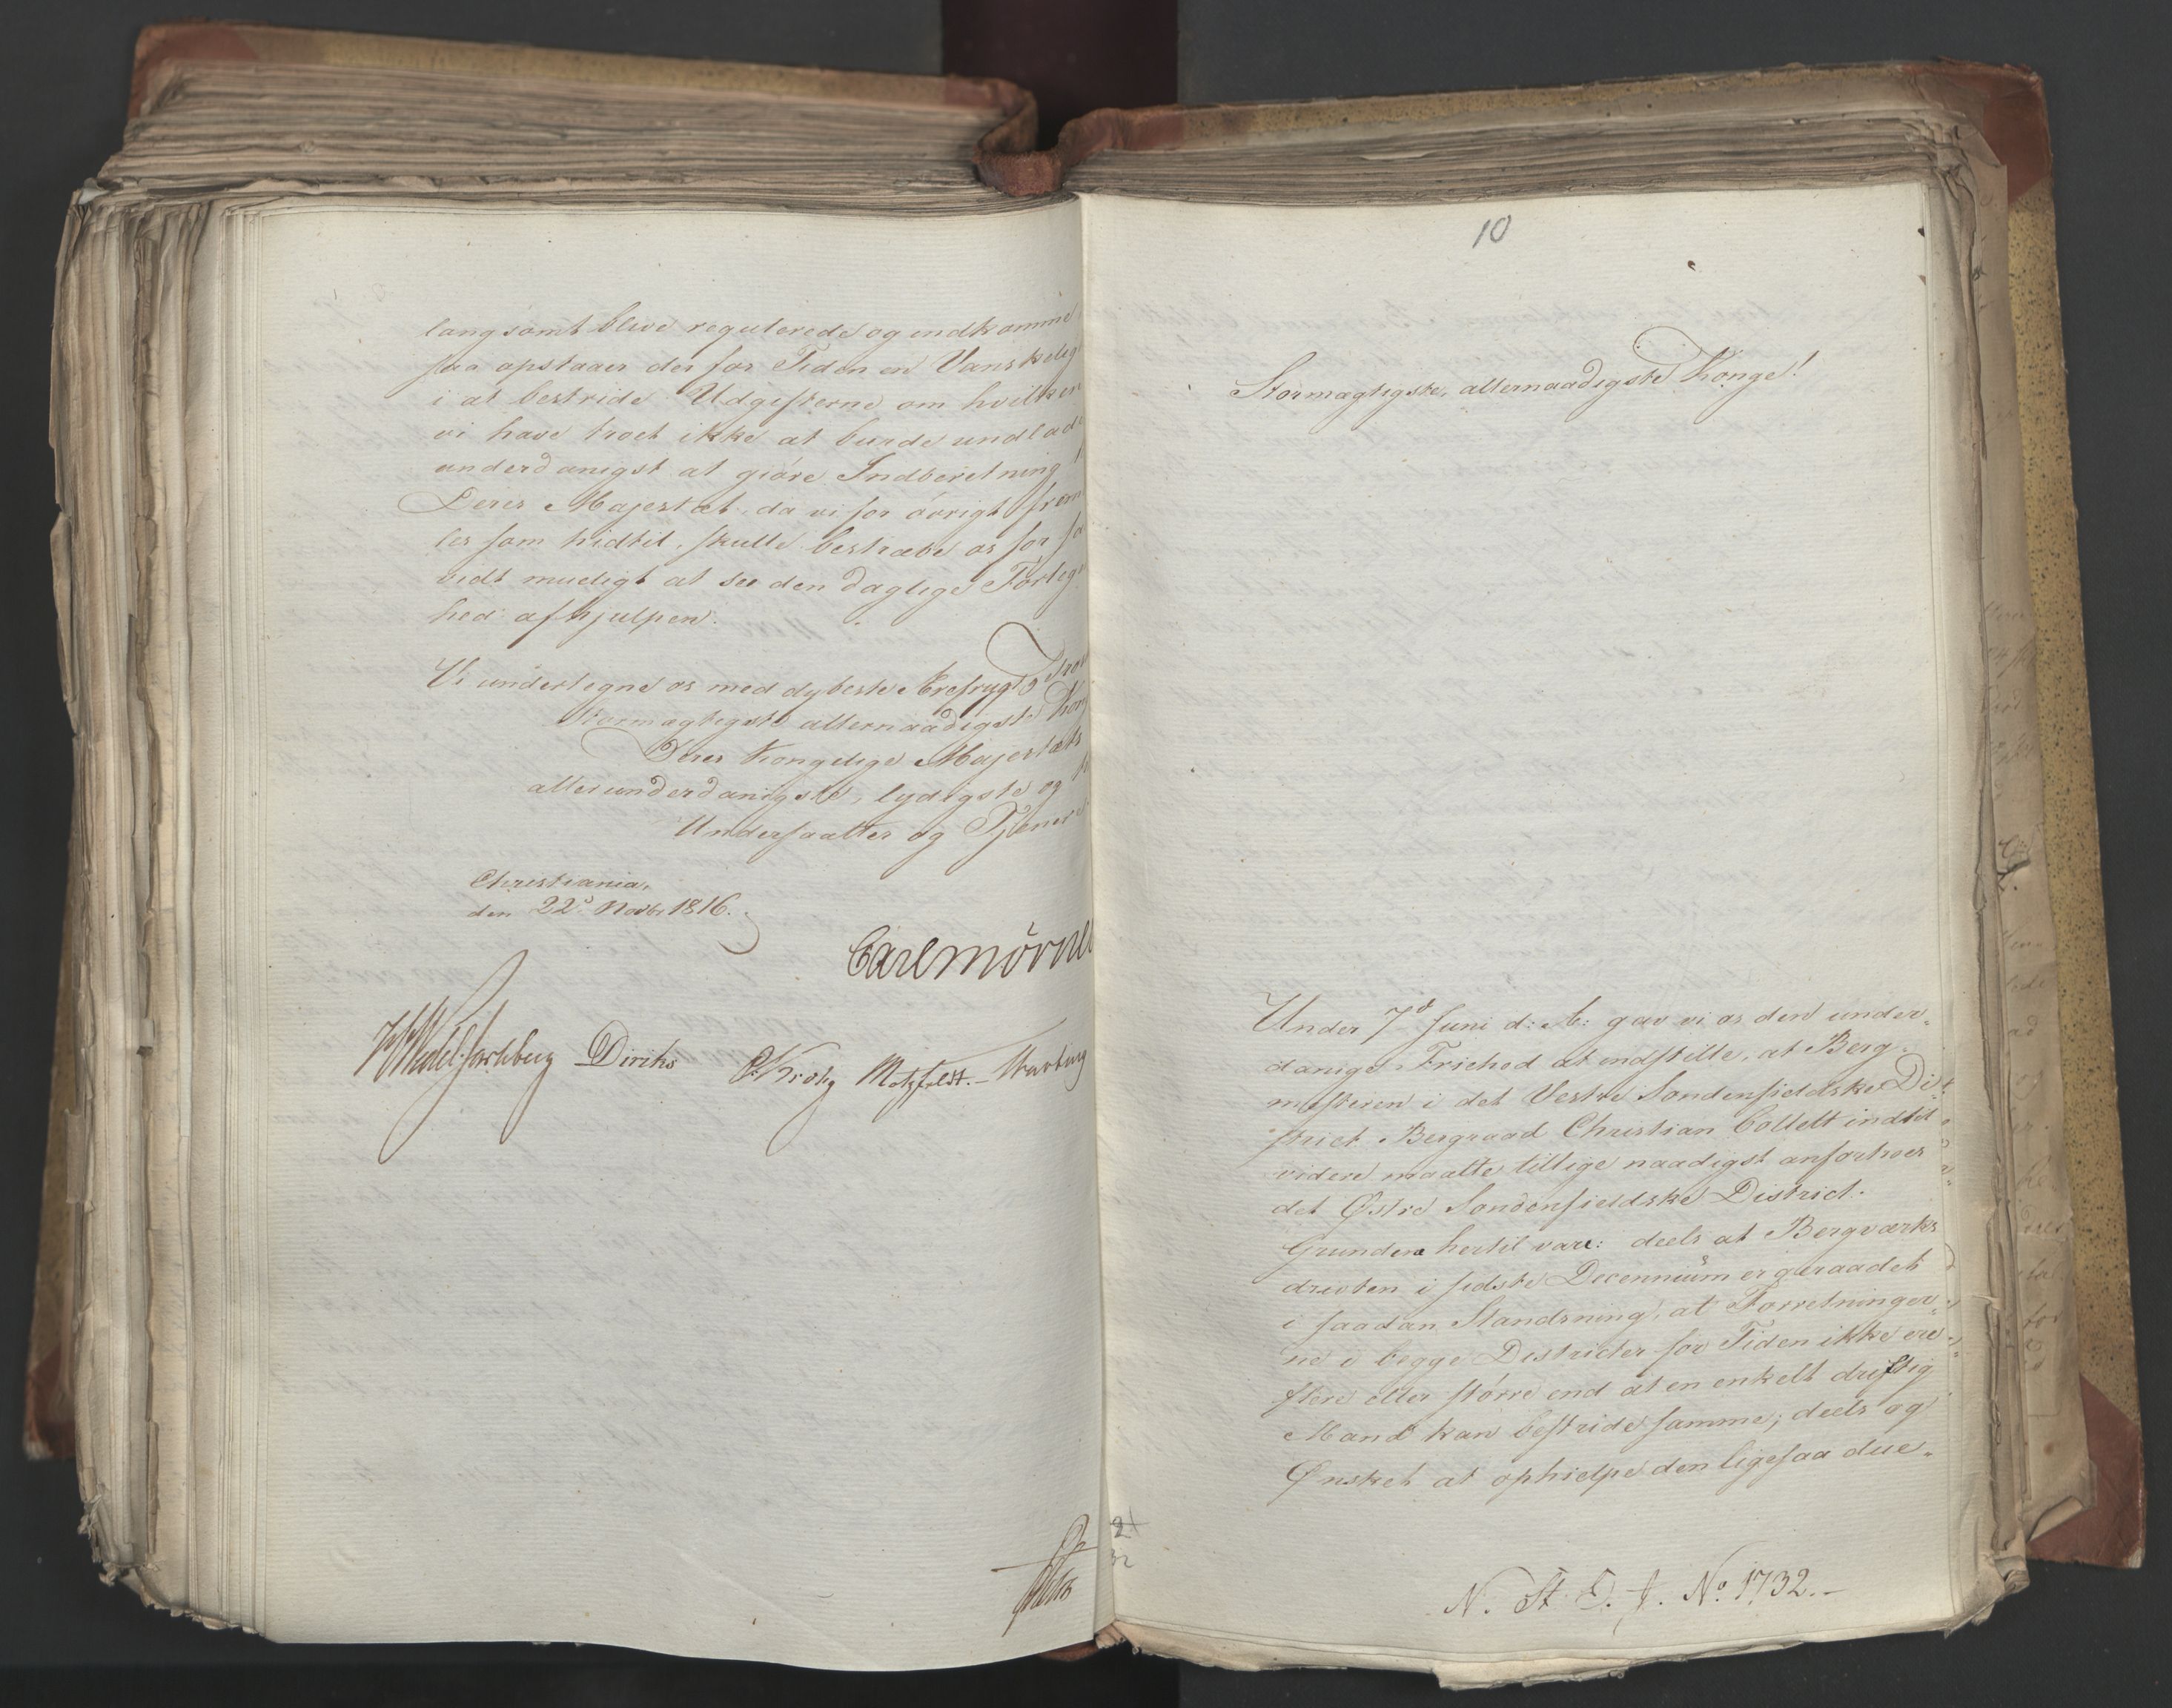 langsomt blive regulerede og indkomme
saa opstaaer der for Tiden en Vanskelig
i at bestride Udgifterne om hvilken
vi have troet ikke at burde undlade
underdanigst at giöre Indberetning
Deres Majestæt, da vi for övrigt frem
les som hidtil, skulle bestræbe os for
vidt mueligt at see den daglige Forleg
hed afhjulpen.
Vi undertegne os med dybeste Ærefrygt
Stormægtigste allernaadigste Kon
Deres Kongelige Majestæts
allerunderdanigste, lydigste og
Undersaatter og Tjenere
Christiania,
den 22d Novbr 1816.
Carl Mörner
HWedel Jarlsberg Diriks Krohg Motzfeldt.
10
Stormægtigste, allernaadigste Konge!
Under 7d Juni d: A: gav vi os den under-
danige Friehed at indstille, at Berg-
mesteren i det Vestre Söndenfieldske Di-
strict Bergraad Christian Collett indtil
videre maatte tillige naadigst anfortroes
det Østre Söndenfieldske District.
Grundene hertil vare: deels at Bergværks
driften i sidste Decennium er geraadet
i saadan Standsning, at Forretninger-
ne i begge Districter for Tiden ikke ere
flere eller större end at en enkelt driftig
Mand kan bestride samme; deels og
Ønsket at ophielpe den ligesaa due-
N. St. E. J. No 1732.-